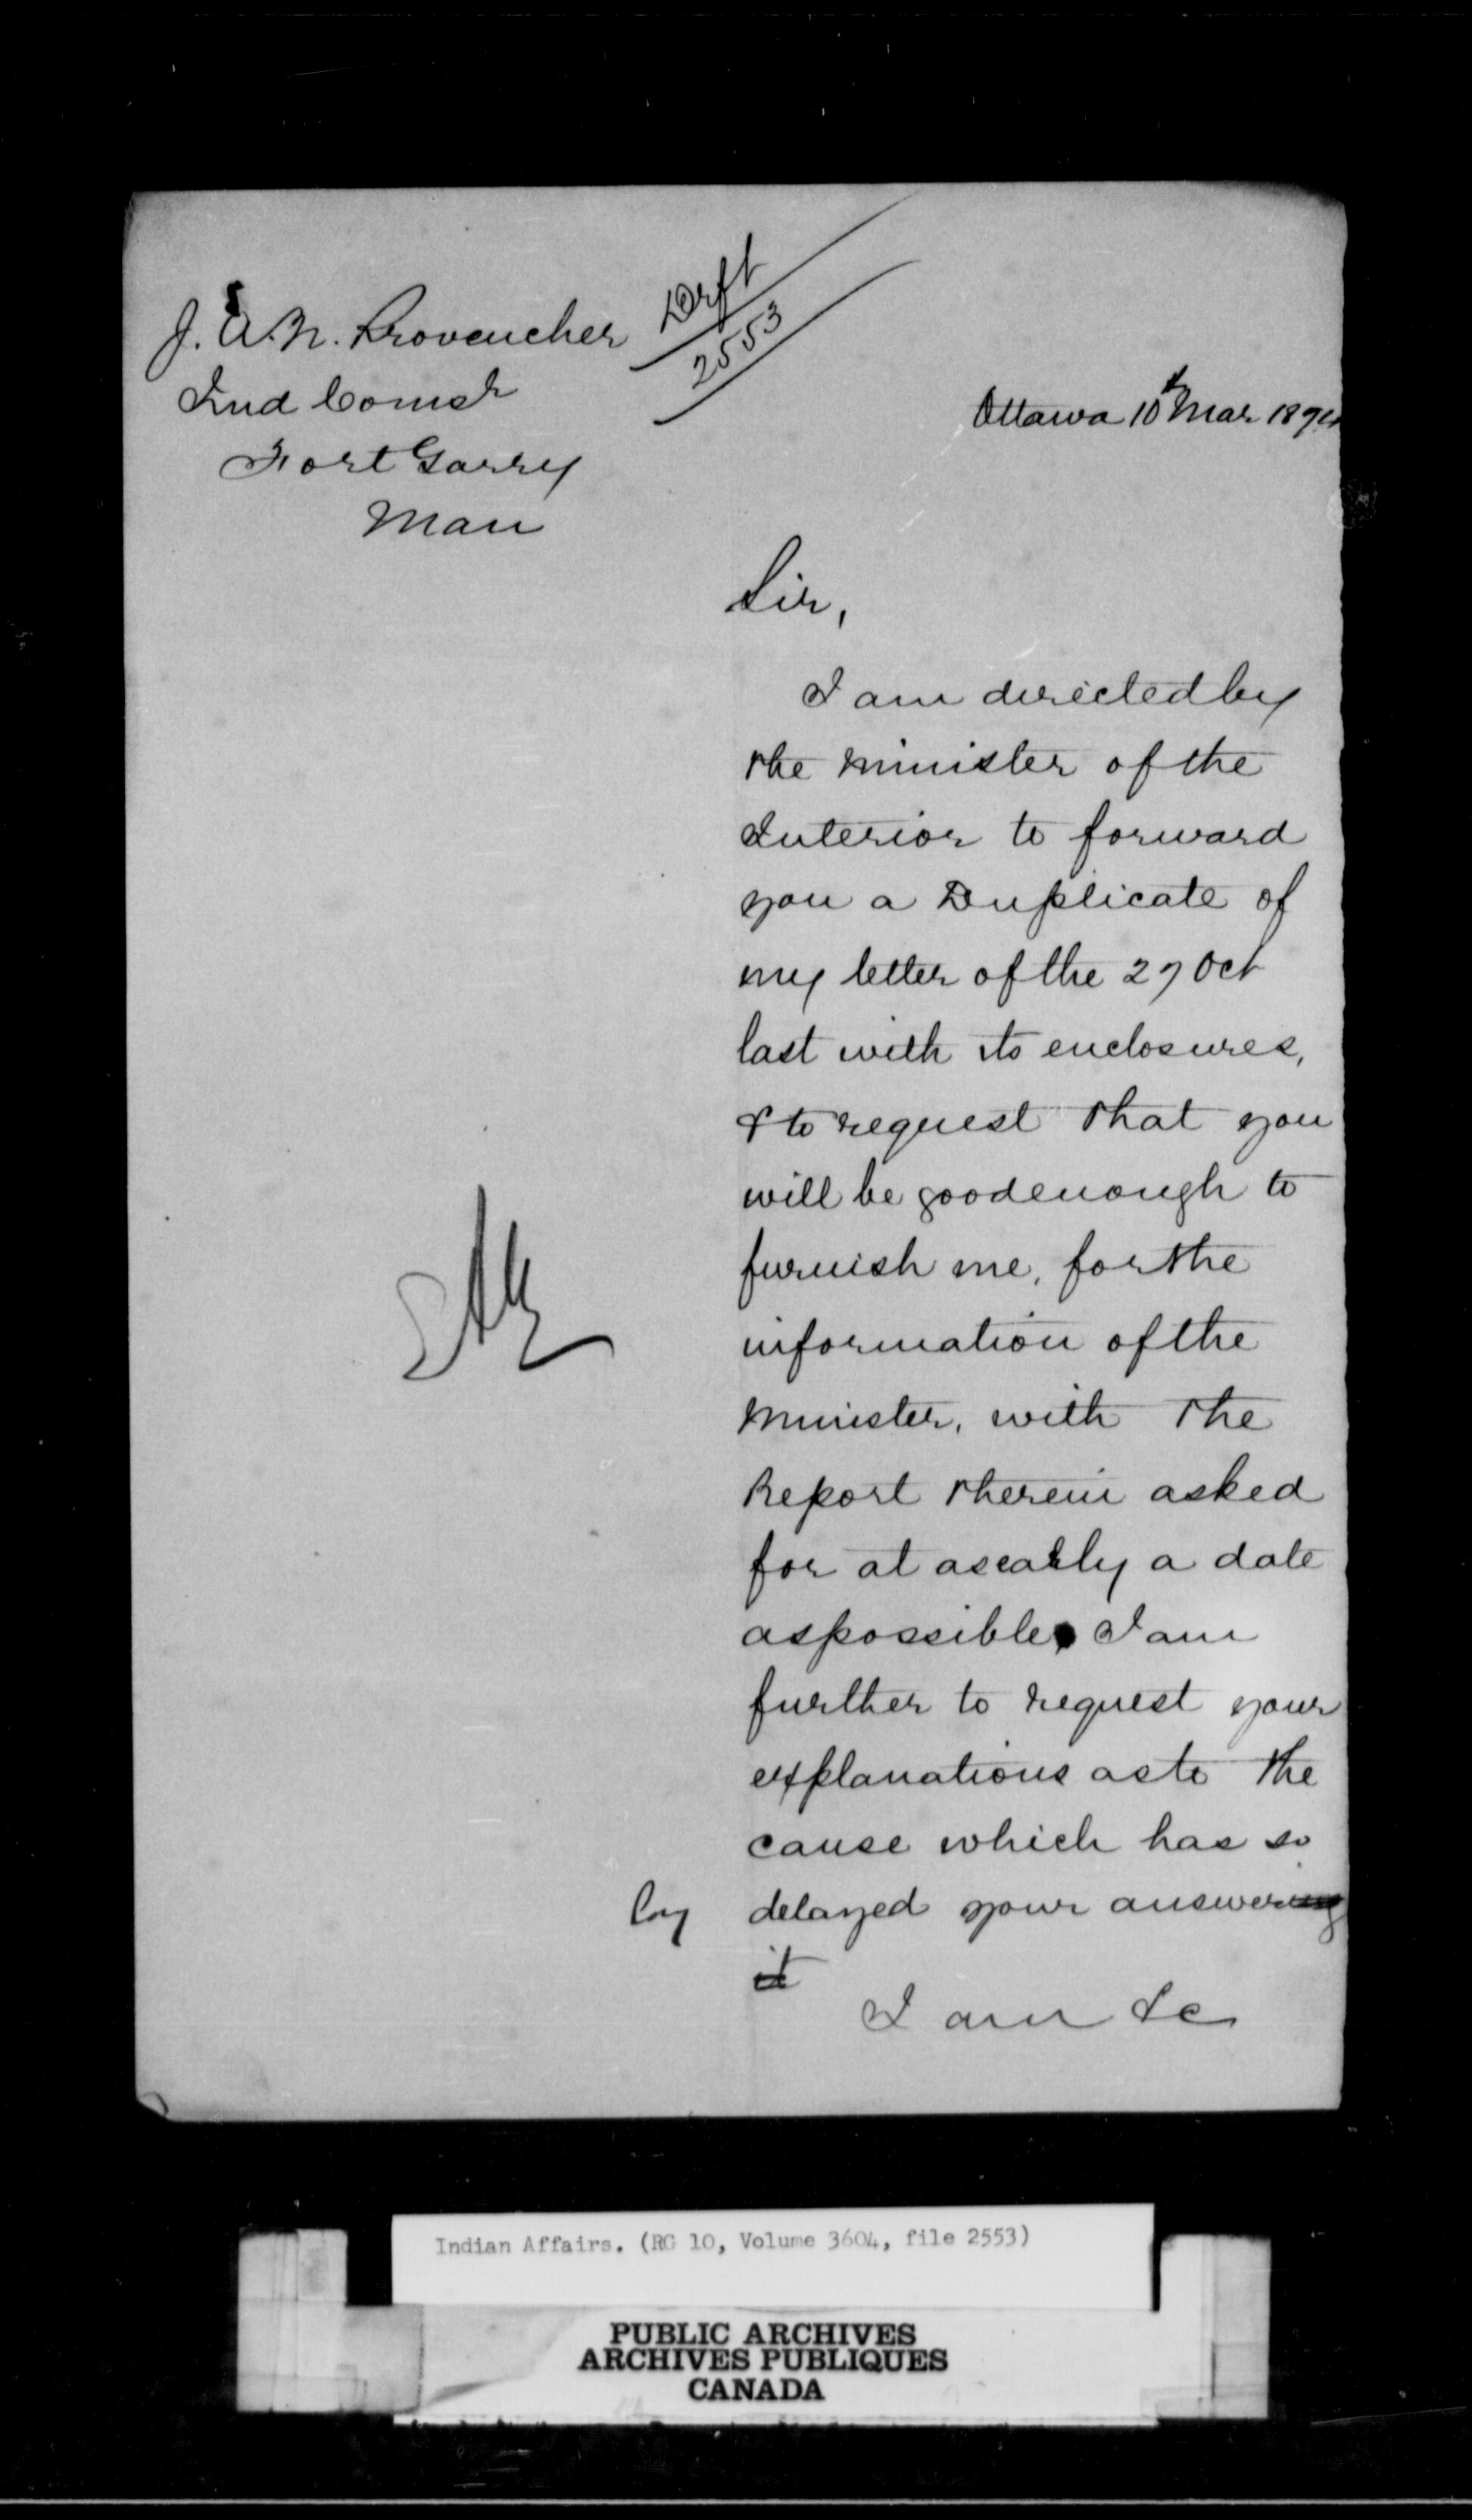 J. A. N. Provencher
Ind Comsr
Fort Garry
Man
Drft
2553
Ottawa 10th Mar 1874
Sir,
I am directed by
the Minister of the
Interior to forward
you a Duplicate of
my letter of the 27 Oct
last with its enclosures,
& to request that you
will be good enough to
furnish me, for the
information of the
Minister, with the
Report therein asked
for at as early a date
as possible, I am
further to request your
explanations as to the
cause which has so
delayed your answering
it
I am &c
Indian Affairs. (RG 10, Volume 3604, file 2553)
PUBLIC ARCHIVES
ARCHIVES PUBLIQUES
CANADA